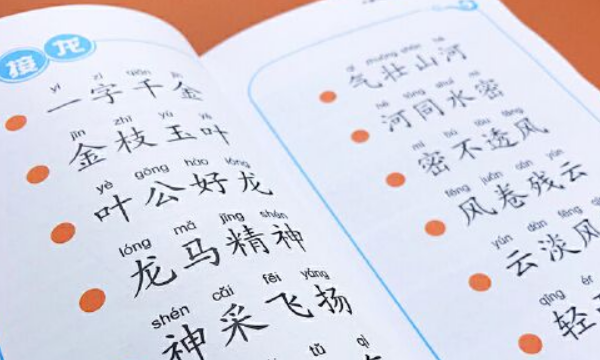 接龙
yí zì qiān jīn
一字千金
jīn zhī yù yè
金枝玉叶
yè gōng hào lóng
叶公好龙
lóng mǎ jīng shén
龙马精神
shén cǎi fēi yáng
神采飞扬
tǔ qì
qì zhuàng shān hé
气壮山河
hé tóng shuǐ mì
河同水密
mì bù tòu fēng
密不透风
fēng juǎn cán yún
风卷残云
yún dàn fēng qīng
云淡风
qīng ér
轻